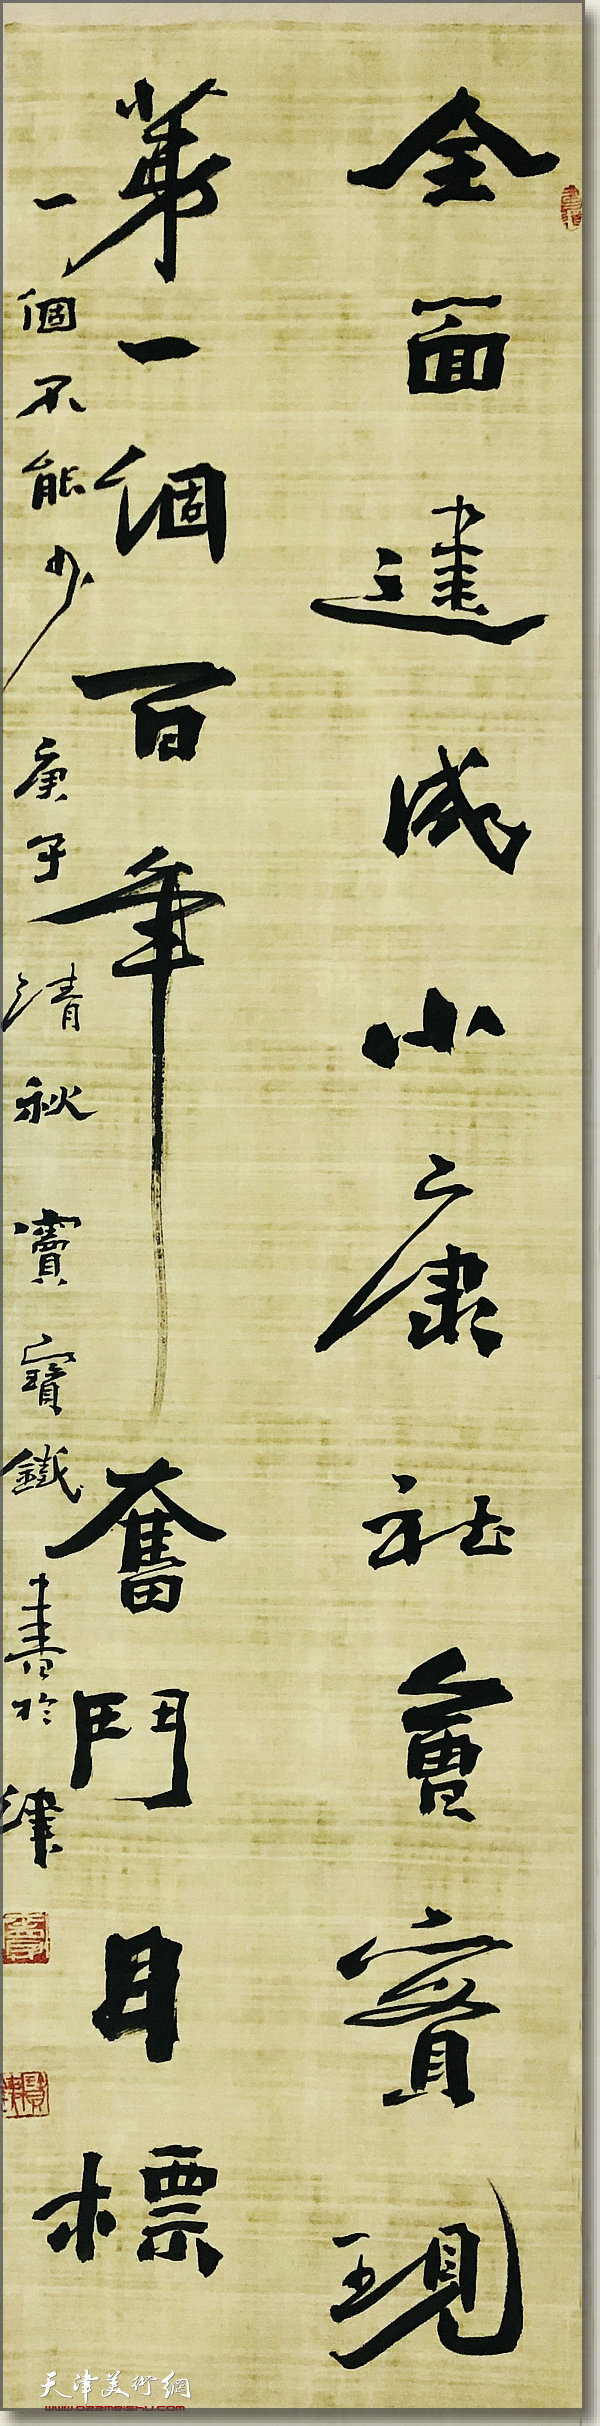 全面建成小康社會實現
第一個百年奮鬥目標
一個不能少 庚子清秋 竇寶鐵書於津
天津美術網